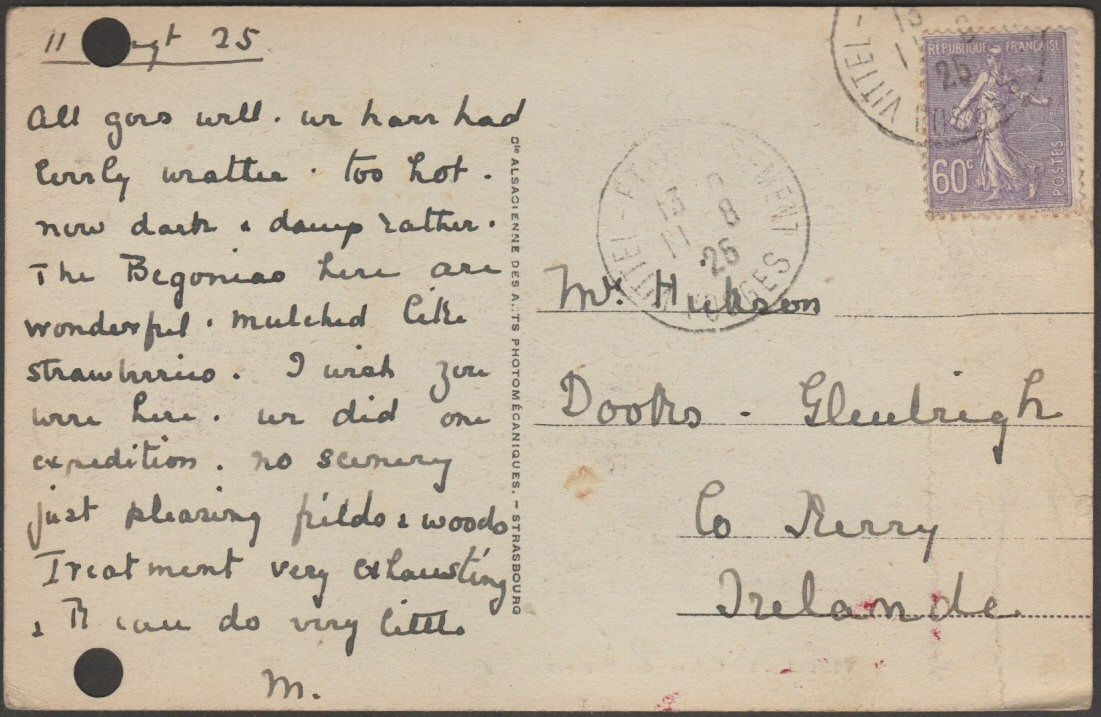 11 Augt 25
All goes well. we have had
lovely weather. too hot.
now dark & damp rather.
The Begonias here are
wonderful. mulched like
strawberries. I wish you
were here. we did one
expedition. no scenery
just pleasing fields & woods
Treatment very exhausting
& B can do very little
M.
Cie ALSACIENNE DES ARTS PHOTOMÉCANIQUES. – STRASBOURG
VITTEL -
RÉPUBLIQUE FRANÇAISE
60c
POSTES
VITTEL - ETABLISSEMENT
VOSGES
11 8
25
Mr. Hickson
Dooks - Glenbeigh
Co Kerry
Irelande.